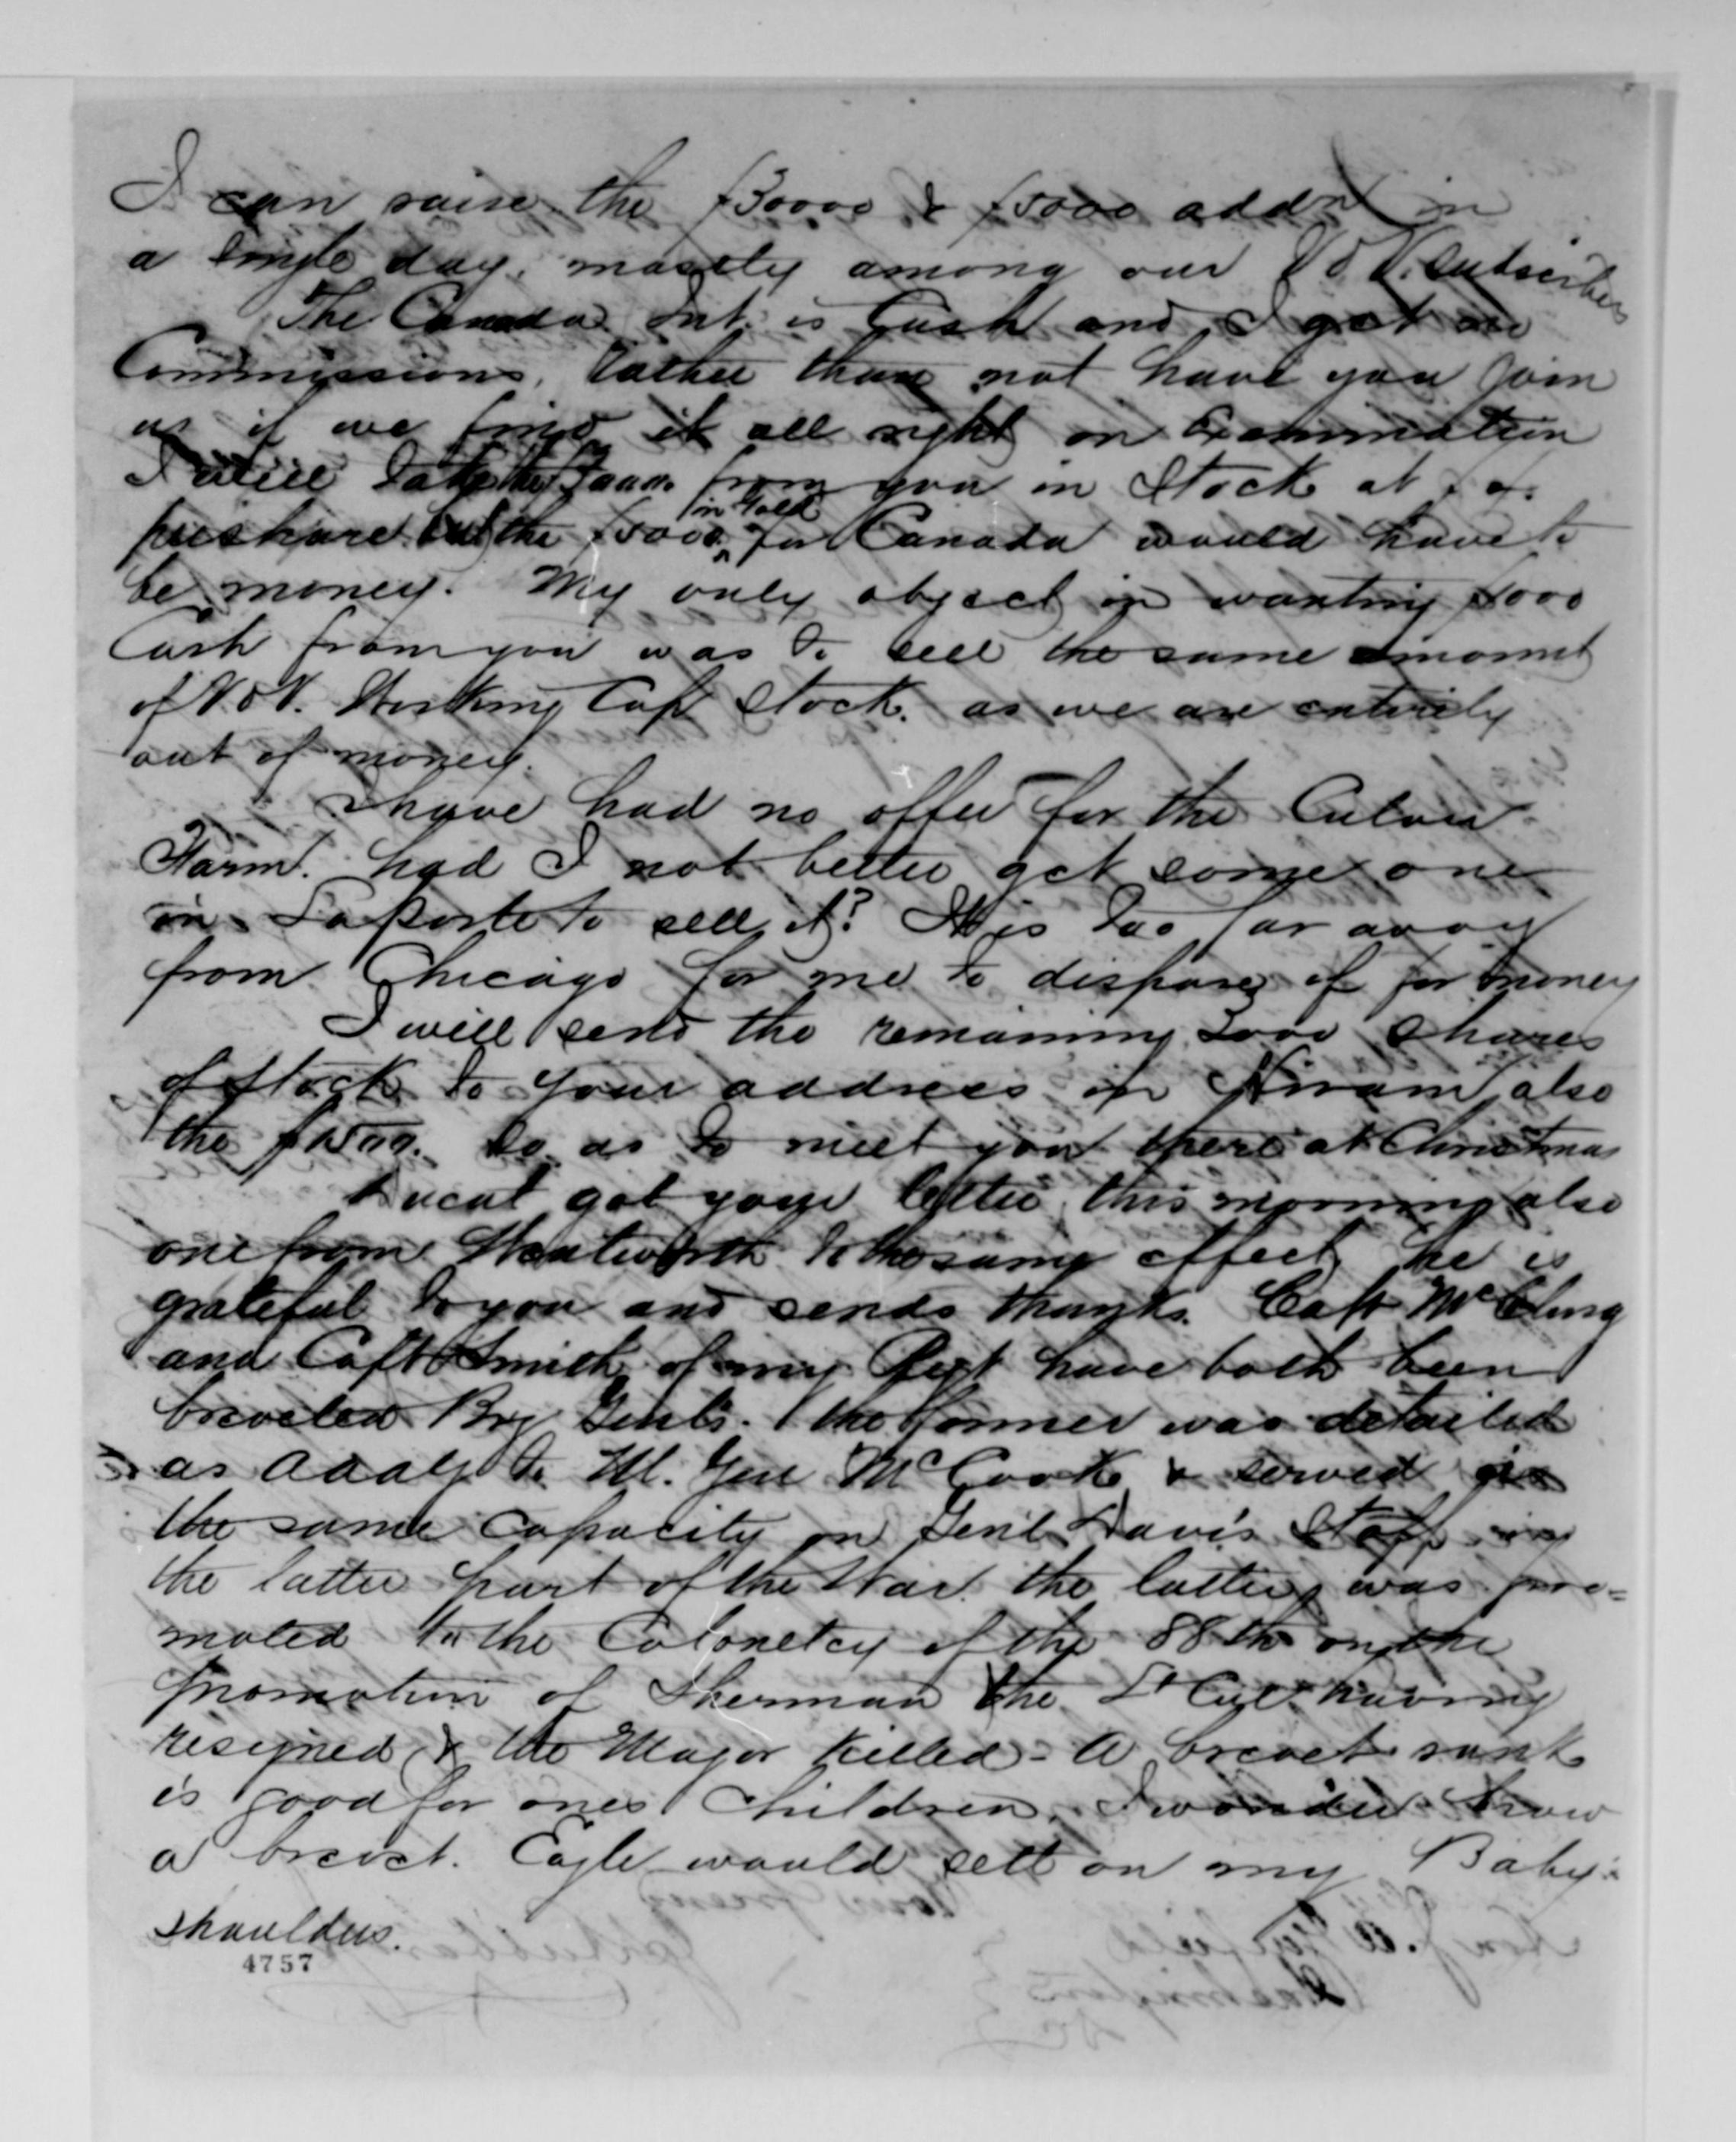 I can raise the $30000 & $5000 addnl in
a single day, mostly among our V&V. Subscribers
The Canada Int. is Cash and I get no
Commissions, rather than not have you join
us if we find it all right on Examination
I will take the from you in Stock at
per share but the $5000 in Gold for Canada would have to
be money. My only object in wanting $1000
Cash from you was to sell the same amount
of V&V. Working Cap Stock. as we are entirely
out of money.
I have had no offer for the Culver
Farm. had I not better get some one
in Laporte to sell it? It is too far away
from Chicago for me to dispose of for money
I will send the remaining 2000 Shares
of Stock to your address in Hiram also
the $1500. so as to meet you there at Christmas
Ducat got your letter this morning also
one from Wentworth to the same effect, he is
grateful to you and sends thanks. Capt McClurg
and Capt Smith of my Regt have both been
breveted Brig Genls. the former was detailed
as AAAG to M. Gen McCook & served in
the same capacity on Genl Davis Staff in
the latter part of the War. the latter was pro=
moted to the Colonelcy of the 88th on the
promotion of Sherman the Lt Col. having
resigned & the Major Killed - A brevet rank
is good for ones Children, I wonder how
a brevet. Eagle would sett on my Baby's
shoulders.
4757